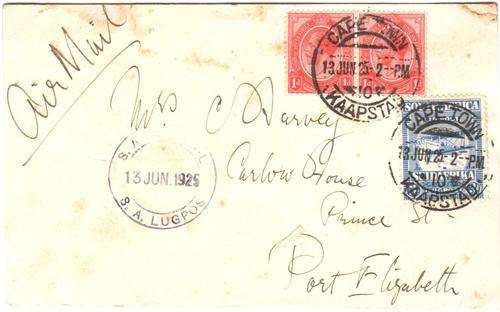 Air Mail
CAPE TOWN
13 JUN 25 · 2 - PM
10
KAAPSTAD
1d 1d
SOUTH AFRICA
CAPE TOWN
13 JUN 25 · 2 - PM
10
KAAPSTAD
Mrs C Harvey
Carlow House
Prince St
Port Elizabeth
S.A.
13 JUN. 1925
S. A. LUGPOS